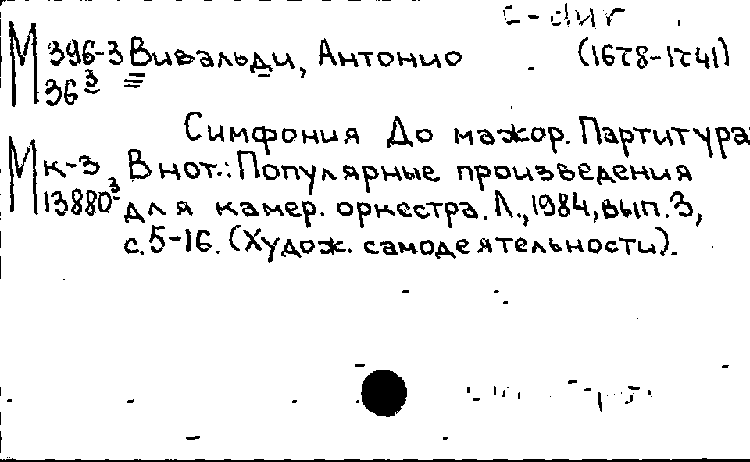 C-dur
М 396-3 Вивальди, Антонио (1678-1741)
36³
Симфония До мажор. Партитура
М к-3 В нот.: Популярные произведения
13880³ для камер. оркестра. Л., 1984, вып. 3,
с. 5-16. (Худож. самодеятельности).